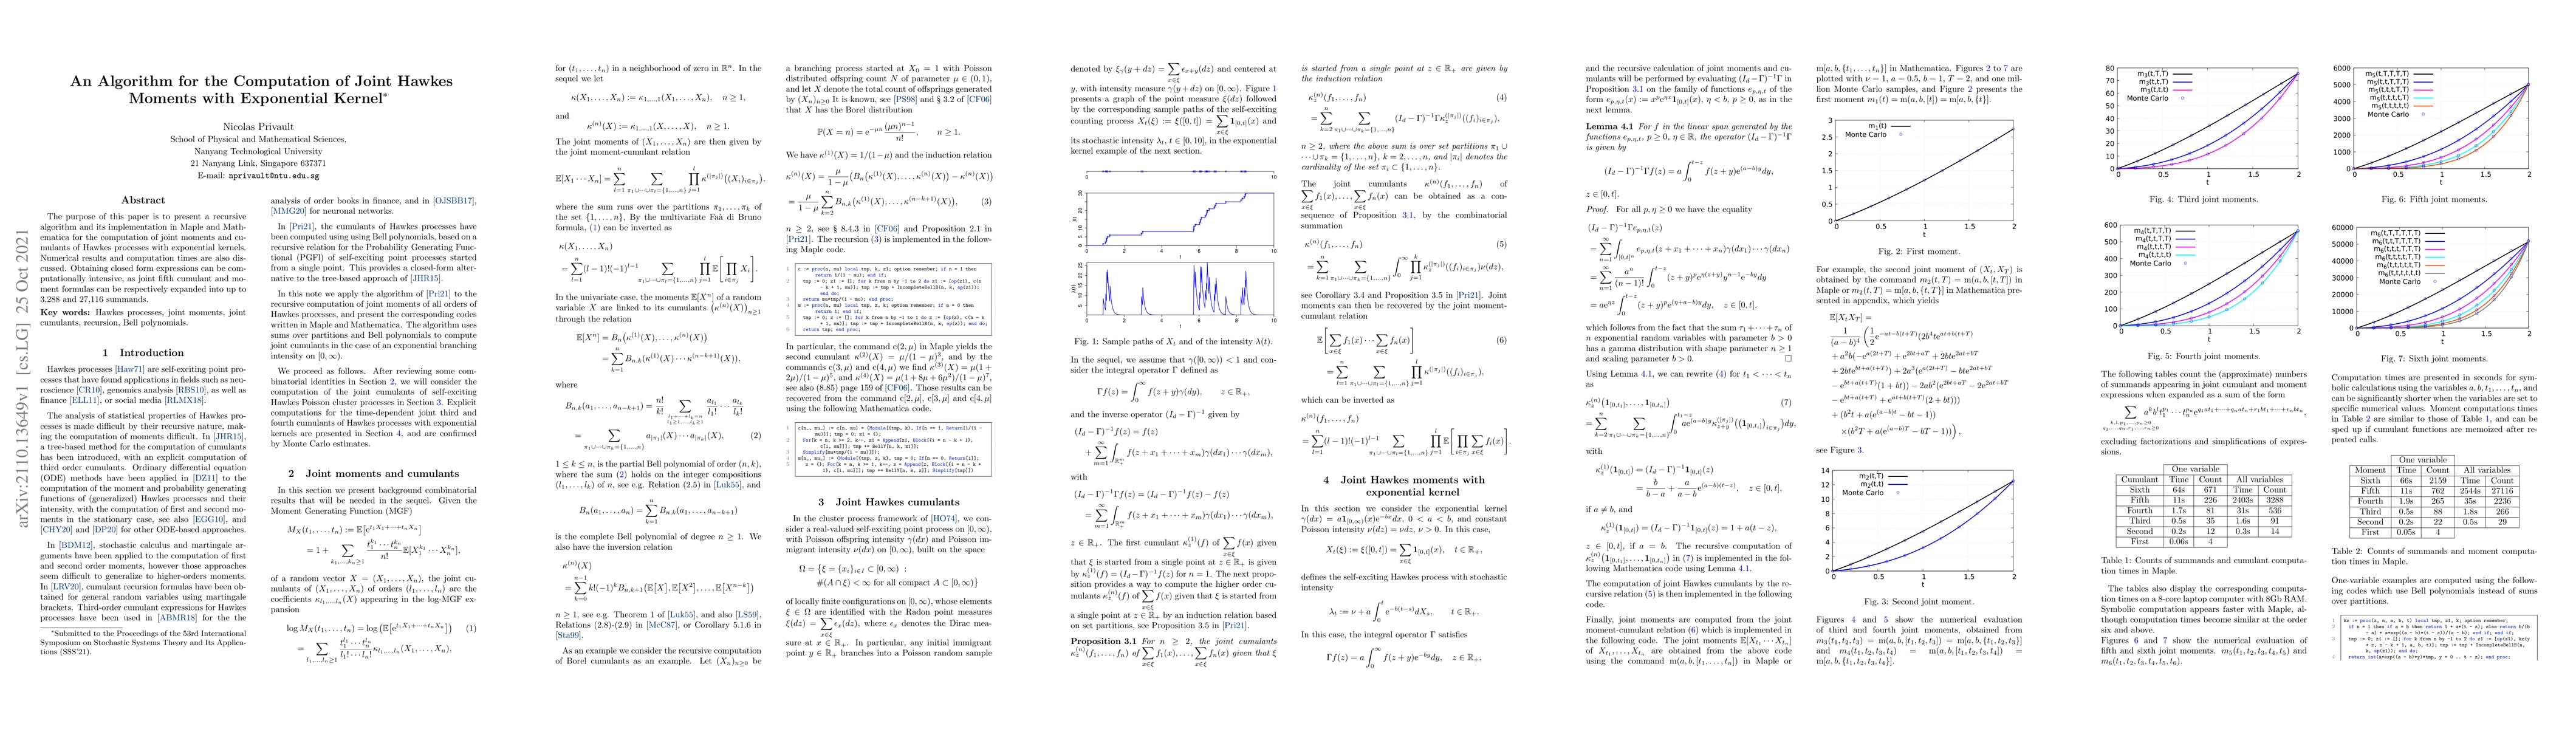 arXiv:2110.13649v1 [cs.LG] 25 Oct 2021
An Algorithm for the Computation of Joint Hawkes
Moments with Exponential Kernel*
Nicolas Privault
School of Physical and Mathematical Sciences,
Nanyang Technological University
21 Nanyang Link, Singapore 637371
E-mail: nprivault@ntu.edu.sg
Abstract
The purpose of this paper is to present a recursive
algorithm and its implementation in Maple and Math-
ematica for the computation of joint moments and cu-
mulants of Hawkes processes with exponential kernels.
Numerical results and computation times are also dis-
cussed. Obtaining closed form expressions can be com-
putationally intensive, as joint fifth cumulant and mo-
ment formulas can be respectively expanded into up to
3,288 and 27,116 summands.
Key words: Hawkes processes, joint moments, joint
cumulants, recursion, Bell polynomials.
1 Introduction
Hawkes processes [Haw71] are self-exciting point pro-
cesses that have found applications in fields such as neu-
roscience [CR10], genomics analysis [RBS10], as well as
finance [ELL11], or social media [RLMX18].
The analysis of statistical properties of Hawkes pro-
cesses is made difficult by their recursive nature, mak-
ing the computation of moments difficult. In [JHR15],
a tree-based method for the computation of cumulants
has been introduced, with an explicit computation of
third order cumulants. Ordinary differential equation
(ODE) methods have been applied in [DZ11] to the
computation of the moment and probability generating
functions of (generalized) Hawkes processes and their
intensity, with the computation of first and second mo-
ments in the stationary case, see also [EGG10], and
[CHY20] and [DP20] for other ODE-based approaches.
In [BDM12], stochastic calculus and martingale ar-
guments have been applied to the computation of first
and second order moments, however those approaches
seem difficult to generalize to higher-orders moments.
In [LRV20], cumulant recursion formulas have been ob-
tained for general random variables using martingale
brackets. Third-order cumulant expressions for Hawkes
processes have been used in [ABMR18] for the the
*Submitted to the Proceedings of the 53rd International
Symposium on Stochastic Systems Theory and Its Applica-
tions (SSS'21).
analysis of order books in finance, and in [OJSBB17],
[MMG20] for neuronal networks.
In [Pri21], the cumulants of Hawkes processes have
been computed using Bell polynomials, based on a
recursive relation for the Probability Generating Func-
tional (PGFl) of self-exciting point processes started
from a single point. This provides a closed-form alter-
native to the tree-based approach of [JHR15].
In this note we apply the algorithm of [Pri21] to the
recursive computation of joint moments of all orders of
Hawkes processes, and present the corresponding codes
written in Maple and Mathematica. The algorithm uses
sums over partitions and Bell polynomials to compute
joint cumulants in the case of an exponential branching
intensity on [0, ∞).
We proceed as follows. After reviewing some com-
binatorial identities in Section 2, we will consider the
computation of the joint cumulants of self-exciting
Hawkes Poisson cluster processes in Section 3. Explicit
computations for the time-dependent joint third and
fourth cumulants of Hawkes processes with exponential
kernels are presented in Section 4, and are confirmed
by Monte Carlo estimates.
2 Joint moments and cumulants
In this section we present background combinatorial
results that will be needed in the sequel. Given the
Moment Generating Function (MGF)
M_X(t₁, . . . , tₙ) := E[e^{t₁X₁+···+tₙXₙ}]
= 1 + ∑_{k₁,...,kₙ≥1} (t₁^{k₁} ··· tₙ^{kₙ} / n!) E[X₁^{k₁} ··· Xₙ^{kₙ}],
of a random vector X = (X₁, . . . , Xₙ), the joint cu-
mulants of (X₁, . . . , Xₙ) of orders (l₁, . . . , lₙ) are the
coefficients κ_{l₁,...,lₙ}(X) appearing in the log-MGF ex-
pansion
log M_X(t₁, . . . , tₙ) = log (E[e^{t₁X₁+···+tₙXₙ}]) (1)
= ∑_{l₁,...,lₙ≥1} (t₁^{l₁} ··· tₙ^{lₙ} / l₁! ··· lₙ!) κ_{l₁,...,lₙ}(X₁, . . . , Xₙ),
for (t₁, . . . , tₙ) in a neighborhood of zero in ℝⁿ. In the
sequel we let
κ(X₁, . . . , Xₙ) := κ_{1,...,1}(X₁, . . . , Xₙ), n ≥ 1,
and
κ^{(n)}(X) := κ_{1,...,1}(X, . . . , X), n ≥ 1.
The joint moments of (X₁, . . . , Xₙ) are then given by
the joint moment-cumulant relation
E[X₁ ··· Xₙ] = ∑_{l=1}^n ∑_{π₁∪···∪π_l={1,...,n}} ∏_{j=1}^l κ^{(|π_j|)}((X_i)_{i∈π_j}).
where the sum runs over the partitions π₁, . . . , π_k of
the set {1, . . . , n}, By the multivariate Faà di Bruno
formula, (1) can be inverted as
κ(X₁, . . . , Xₙ)
= ∑_{l=1}^n (l − 1)!(−1)^{l−1} ∑_{π₁∪···∪π_l={1,...,n}} ∏_{j=1}^l E[∏_{i∈π_j} X_i].
In the univariate case, the moments E[Xⁿ] of a random
variable X are linked to its cumulants (κ^{(n)}(X))_{n≥1}
through the relation
E[Xⁿ] = Bₙ(κ^{(1)}(X), . . . , κ^{(n)}(X))
= ∑_{k=1}^n B_{n,k}(κ^{(1)}(X) ··· κ^{(n−k+1)}(X)),
where
B_{n,k}(a₁, . . . , a_{n−k+1}) = (n!/k!) ∑_{l₁+···+l_k=n, l₁≥1,...,l_k≥1} (a_{l₁}/l₁!) ··· (a_{l_k}/l_k!)
= ∑_{π₁∪···∪π_k={1,...,n}} a_{|π₁|}(X) ··· a_{|π_k|}(X), (2)
1 ≤ k ≤ n, is the partial Bell polynomial of order (n, k),
where the sum (2) holds on the integer compositions
(l₁, . . . , l_k) of n, see e.g. Relation (2.5) in [Luk55], and
Bₙ(a₁, . . . , aₙ) = ∑_{k=1}^n B_{n,k}(a₁, . . . , a_{n−k+1})
is the complete Bell polynomial of degree n ≥ 1. We
also have the inversion relation
κ^{(n)}(X)
= ∑_{k=0}^{n−1} k!(−1)^k B_{n,k+1}(E[X], E[X²], . . . , E[X^{n−k}])
n ≥ 1, see e.g. Theorem 1 of [Luk55], and also [LS59],
Relations (2.8)-(2.9) in [McC87], or Corollary 5.1.6 in
[Sta99].
As an example we consider the recursive computation
of Borel cumulants as an example. Let (Xₙ)_{n≥0} be
a branching process started at X₀ = 1 with Poisson
distributed offspring count N of parameter μ ∈ (0, 1),
and let X denote the total count of offsprings generated
by (Xₙ)_{n≥0} It is known, see [PS98] and § 3.2 of [CF06]
that X has the Borel distribution
P(X = n) = e^{−μn} (μn)^{n−1}/n!, n ≥ 1.
We have κ^{(1)}(X) = 1/(1−μ) and the induction relation
κ^{(n)}(X) = μ/(1−μ) (Bₙ(κ^{(1)}(X), . . . , κ^{(n)}(X)) − κ^{(n)}(X))
= μ/(1−μ) ∑_{k=2}^n B_{n,k}(κ^{(1)}(X), . . . , κ^{(n−k+1)}(X)), (3)
n ≥ 2, see § 8.4.3 in [CF06] and Proposition 2.1 in
[Pri21]. The recursion (3) is implemented in the follow-
ing Maple code.
In particular, the command c(2, μ) in Maple yields the
second cumulant κ^{(2)}(X) = μ/(1 − μ)³, and by the
commands c(3, μ) and c(4, μ) we find κ^{(3)}(X) = μ(1 +
2μ)/(1−μ)⁵, and κ^{(4)}(X) = μ(1 + 8μ + 6μ²)/(1−μ)⁷,
see also (8.85) page 159 of [CF06]. Those results can be
recovered from the command c[2, μ], c[3, μ] and c[4, μ]
using the following Mathematica code.
3 Joint Hawkes cumulants
In the cluster process framework of [HO74], we con-
sider a real-valued self-exciting point process on [0, ∞),
with Poisson offspring intensity γ(dx) and Poisson im-
migrant intensity ν(dx) on [0, ∞), built on the space
Ω = {ξ = {x_i}_{i∈I} ⊂ [0, ∞) :
#(A ∩ ξ) < ∞ for all compact A ⊂ [0, ∞)}
of locally finite configurations on [0, ∞), whose elements
ξ ∈ Ω are identified with the Radon point measures
ξ(dz) = ∑_{x∈ξ} ϵ_x(dz), where ϵ_x denotes the Dirac mea-
sure at x ∈ ℝ₊. In particular, any initial immigrant
point y ∈ ℝ₊ branches into a Poisson random sample
denoted by ξ_γ(y + dz) = ∑_{x∈ξ} ϵ_{x+y}(dz) and centered at
y, with intensity measure γ(y + dz) on [0, ∞). Figure 1
presents a graph of the point measure ξ(dz) followed
by the corresponding sample paths of the self-exciting
counting process X_t(ξ) := ξ([0, t]) = ∑_{x∈ξ} 1_{[0,t]}(x) and
its stochastic intensity λ_t, t ∈ [0, 10], in the exponential
kernel example of the next section.
Fig. 1: Sample paths of X_t and of the intensity λ(t).
In the sequel, we assume that γ([0, ∞)) < 1 and con-
sider the integral operator Γ defined as
Γf(z) = ∫₀^∞ f(z + y)γ(dy), z ∈ ℝ₊,
and the inverse operator (I_d − Γ)^{−1} given by
(I_d − Γ)^{−1}f(z) = f(z)
+ ∑_{m=1}^∞ ∫_{ℝ₊^m} f(z + x₁ + ··· + x_m) γ(dx₁) ··· γ(dx_m),
with
(I_d − Γ)^{−1}Γf(z) = (I_d − Γ)^{−1}f(z) − f(z)
= ∑_{m=1}^∞ ∫_{ℝ₊^m} f(z + x₁ + ··· + x_m) γ(dx₁) ··· γ(dx_m),
z ∈ ℝ₊. The first cumulant κ_z^{(1)}(f) of ∑_{x∈ξ} f(x) given
that ξ is started from a single point at z ∈ ℝ₊ is given
by κ_z^{(1)}(f) = (I_d − Γ)^{−1}f(z) for n = 1. The next propo-
sition provides a way to compute the higher order cu-
mulants κ_z^{(n)}(f) of ∑_{x∈ξ} f(x) given that ξ is started from
a single point at z ∈ ℝ₊ by an induction relation based
on set partitions, see Proposition 3.5 in [Pri21].
Proposition 3.1 For n ≥ 2, the joint cumulants
κ_z^{(n)}(f₁, . . . , fₙ) of ∑_{x∈ξ} f₁(x), . . . , ∑_{x∈ξ} fₙ(x) given that ξ
is started from a single point at z ∈ ℝ₊ are given by
the induction relation
κ_z^{(n)}(f₁, . . . , fₙ) (4)
= ∑_{k=2}^n ∑_{π₁∪···∪π_k={1,...,n}} (I_d − Γ)^{−1}Γ ∏_{j=1}^k κ_z^{(|π_j|)}((f_i)_{i∈π_j}),
n ≥ 2, where the above sum is over set partitions π₁ ∪
··· ∪ π_k = {1, . . . , n}, k = 2, . . . , n, and |π_i| denotes the
cardinality of the set π_i ⊂ {1, . . . , n}.
The joint cumulants κ^{(n)}(f₁, . . . , fₙ) of
∑_{x∈ξ} f₁(x), . . . , ∑_{x∈ξ} fₙ(x) can be obtained as a con-
sequence of Proposition 3.1, by the combinatorial
summation
κ^{(n)}(f₁, . . . , fₙ) (5)
= ∑_{k=1}^n ∑_{π₁∪···∪π_k={1,...,n}} ∫₀^∞ ∏_{j=1}^k κ_z^{(|π_j|)}((f_i)_{i∈π_j})ν(dz),
see Corollary 3.4 and Proposition 3.5 in [Pri21]. Joint
moments can then be recovered by the joint moment-
cumulant relation
E[∑_{x∈ξ} f₁(x) ··· ∑_{x∈ξ} fₙ(x)] (6)
= ∑_{l=1}^n ∑_{π₁∪···∪π_l={1,...,n}} ∏_{j=1}^l κ^{(|π_j|)}((f_i)_{i∈π_j}),
which can be inverted as
κ^{(n)}(f₁, . . . , fₙ)
= ∑_{l=1}^n (l−1)!(−1)^{l−1} ∑_{π₁∪···∪π_l={1,...,n}} ∏_{j=1}^l E[∏_{i∈π_j} ∑_{x∈ξ} f_i(x)].
4 Joint Hawkes moments with
exponential kernel
In this section we consider the exponential kernel
γ(dx) = a1_{[0,∞)}(x)e^{−bx}dx, 0 < a < b, and constant
Poisson intensity ν(dz) = νdz, ν > 0. In this case,
X_t(ξ) := ξ([0, t]) = ∑_{x∈ξ} 1_{[0,t]}(x), t ∈ ℝ₊,
defines the self-exciting Hawkes process with stochastic
intensity
λ_t := ν + a ∫₀^t e^{−b(t−s)}dX_s, t ∈ ℝ₊.
In this case, the integral operator Γ satisfies
Γf(z) = a ∫₀^∞ f(z + y)e^{−by}dy, z ∈ ℝ₊,
and the recursive calculation of joint moments and cu-
mulants will be performed by evaluating (I_d − Γ)^{−1}Γ in
Proposition 3.1 on the family of functions e_{p,η,t} of the
form e_{p,η,t}(x) := x^p e^{ηx} 1_{[0,t]}(x), η < b, p ≥ 0, as in the
next lemma.
Lemma 4.1 For f in the linear span generated by the
functions e_{p,η,t}, p ≥ 0, η ∈ ℝ, the operator (I_d − Γ)^{−1}Γ
is given by
(I_d − Γ)^{−1}Γf(z) = a ∫₀^{t−z} f(z + y)e^{(a−b)y}dy,
z ∈ [0, t].
Proof. For all p, η ≥ 0 we have the equality
(I_d − Γ)^{−1}Γe_{p,η,t}(z)
= ∑_{n=1}^∞ ∫_{[0,t]ⁿ} e_{p,η,t}(z + x₁ + ··· + xₙ) γ(dx₁) ··· γ(dxₙ)
= ∑_{n=1}^∞ aⁿ/(n−1)! ∫₀^{t−z} (z + y)^p e^{η(z+y)} y^{n−1}e^{−by}dy
= ae^{ηz} ∫₀^{t−z} (z + y)^p e^{(η+a−b)y}dy, z ∈ [0, t],
which follows from the fact that the sum τ₁ + ··· + τₙ of
n exponential random variables with parameter b > 0
has a gamma distribution with shape parameter n ≥ 1
and scaling parameter b > 0. □
Using Lemma 4.1, we can rewrite (4) for t₁ < ··· < tₙ
as
κ_z^{(n)}(1_{[0,t₁]}, . . . , 1_{[0,tₙ]}) (7)
= ∑_{k=2}^n ∑_{π₁∪···∪π_k={1,...,n}} ∫₀^{t₁−z} ae^{(a−b)y} ∏_{j=1}^k κ_{z+y}^{(|π_j|)}((1_{[0,t_i]})_{i∈π_j})dy,
with
κ_z^{(1)}(1_{[0,t]}) = (I_d − Γ)^{−1}1_{[0,t]}(z)
= b/(b−a) + a/(a−b) e^{(a−b)(t−z)}, z ∈ [0, t],
if a ≠ b, and
κ_z^{(1)}(1_{[0,t]}) = (I_d − Γ)^{−1}1_{[0,t]}(z) = 1 + a(t − z),
z ∈ [0, t], if a = b. The recursive computation of
κ_z^{(n)}(1_{[0,t₁]}, . . . , 1_{[0,tₙ]}) in (7) is implemented in the fol-
lowing Mathematica code using Lemma 4.1.
The computation of joint Hawkes cumulants by the re-
cursive relation (5) is then implemented in the following
code.
Finally, joint moments are computed from the joint
moment-cumulant relation (6) which is implemented in
the following code. The joint moments E[X_{t₁} ··· X_{tₙ}]
of X_{t₁}, . . . , X_{tₙ} are obtained from the above code
using the command m(a, b, [t₁, . . . , tₙ]) in Maple or
m[a, b, {t₁, . . . , tₙ}] in Mathematica. Figures 2 to 7 are
plotted with ν = 1, a = 0.5, b = 1, T = 2, and one mil-
lion Monte Carlo samples, and Figure 2 presents the
first moment m₁(t) = m(a, b, [t]) = m[a, b, {t}].
m₁(t)
Monte Carlo
Fig. 2: First moment.
For example, the second joint moment of (X_t, X_T) is
obtained by the command m₂(t, T) = m(a, b, [t, T]) in
Maple or m₂(t, T) = m[a, b, {t, T}] in Mathematica pre-
sented in appendix, which yields
E[X_tX_T] =
see Figure 3.
m₂(t,T)
m₂(t,t)
Monte Carlo
Fig. 3: Second joint moment.
Figures 4 and 5 show the numerical evaluation
of third and fourth joint moments, obtained from
m₃(t₁, t₂, t₃) = m(a, b, [t₁, t₂, t₃]) = m[a, b, {t₁, t₂, t₃}]
and m₄(t₁, t₂, t₃, t₄) = m(a, b, [t₁, t₂, t₃, t₄]) =
m[a, b, {t₁, t₂, t₃, t₄}].
m₃(t,T,T)
m₃(t,t,T)
m₃(t,t,t)
Monte Carlo
Fig. 4: Third joint moments.
m₄(t,T,T,T)
m₄(t,t,T,T)
m₄(t,t,t,T)
m₄(t,t,t,t)
Monte Carlo
Fig. 5: Fourth joint moments.
The following tables count the (approximate) numbers
of summands appearing in joint cumulant and moment
expressions when expanded as a sum of the form
excluding factorizations and simplifications of expres-
sions.
One variable
Cumulant Time Count All variables
Sixth 64s 671 Time Count
Fifth 11s 226 2403s 3288
Fourth 1.7s 81 31s 536
Third 0.5s 35 1.6s 91
Second 0.2s 12 0.3s 14
First 0.06s 4
Table 1: Counts of summands and cumulant computa-
tion times in Maple.
The tables also display the corresponding computa-
tion times on a 8-core laptop computer with 8Gb RAM.
Symbolic computation appears faster with Maple, al-
though computation times become similar at the order
six and above.
Figures 6 and 7 show the numerical evaluation of
fifth and sixth joint moments. m₅(t₁, t₂, t₃, t₄, t₅) and
m₆(t₁, t₂, t₃, t₄, t₅, t₆).
m₅(t,T,T,T,T)
m₅(t,t,T,T,T)
m₅(t,t,t,T,T)
m₅(t,t,t,t,T)
m₅(t,t,t,t,t)
Monte Carlo
Fig. 6: Fifth joint moments.
m₆(t,T,T,T,T,T)
m₆(t,t,T,T,T,T)
m₆(t,t,t,T,T,T)
m₆(t,t,t,t,T,T)
m₆(t,t,t,t,t,T)
m₆(t,t,t,t,t,t)
Monte Carlo
Fig. 7: Sixth joint moments.
Computation times are presented in seconds for sym-
bolic calculations using the variables a, b, t₁, . . . , tₙ, and
can be significantly shorter when the variables are set to
specific numerical values. Moment computations times
in Table 2 are similar to those of Table 1, and can be
sped up if cumulant functions are memoized after re-
peated calls.
One variable
Moment Time Count All variables
Sixth 66s 2159 Time Count
Fifth 11s 762 2544s 27116
Fourth 1.9s 265 35s 2236
Third 0.5s 88 1.8s 266
Second 0.2s 22 0.5s 29
First 0.05s 4
Table 2: Counts of summands and moment computa-
tion times in Maple.
One-variable examples are computed using the follow-
ing codes which use Bell polynomials instead of sums
over partitions.